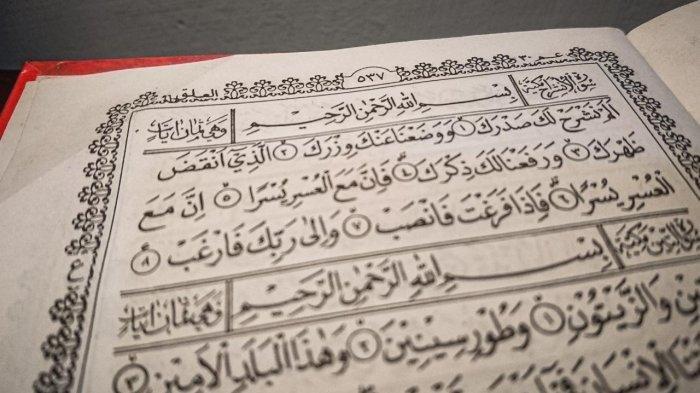 عم ٣٠ ٥٣٧
سورة الانشراح مكية بِسْمِ اللهِ الرَّحْمٰنِ الرَّحِيْمِ وَهِيَ ثَمَانُ اٰيَاتٍ
اَلَمْ نَشْرَحْ لَكَ صَدْرَكَ ۝١ وَوَضَعْنَا عَنْكَ وِزْرَكَ ۝٢ الَّذِيْٓ اَنْقَضَ
ظَهْرَكَ ۝٣ وَرَفَعْنَا لَكَ ذِكْرَكَ ۝٤ فَاِنَّ مَعَ الْعُسْرِ يُسْرًا ۝٥ اِنَّ مَعَ
الْعُسْرِ يُسْرًا ۝٦ فَاِذَا فَرَغْتَ فَانْصَبْ ۝٧ وَاِلٰى رَبِّكَ فَارْغَبْ ۝٨
سورة التين مكية بِسْمِ اللهِ الرَّحْمٰنِ الرَّحِيْمِ وَهِيَ ثَمَانُ اٰيَاتٍ
وَالزَّيْتُوْنِ ۝١ وَطُوْرِ سِيْنِيْنَ ۝٢ وَهٰذَا الْبَلَدِ الْاَمِيْنِ ۝٣
الْاِنْسَانَ فِيْٓ